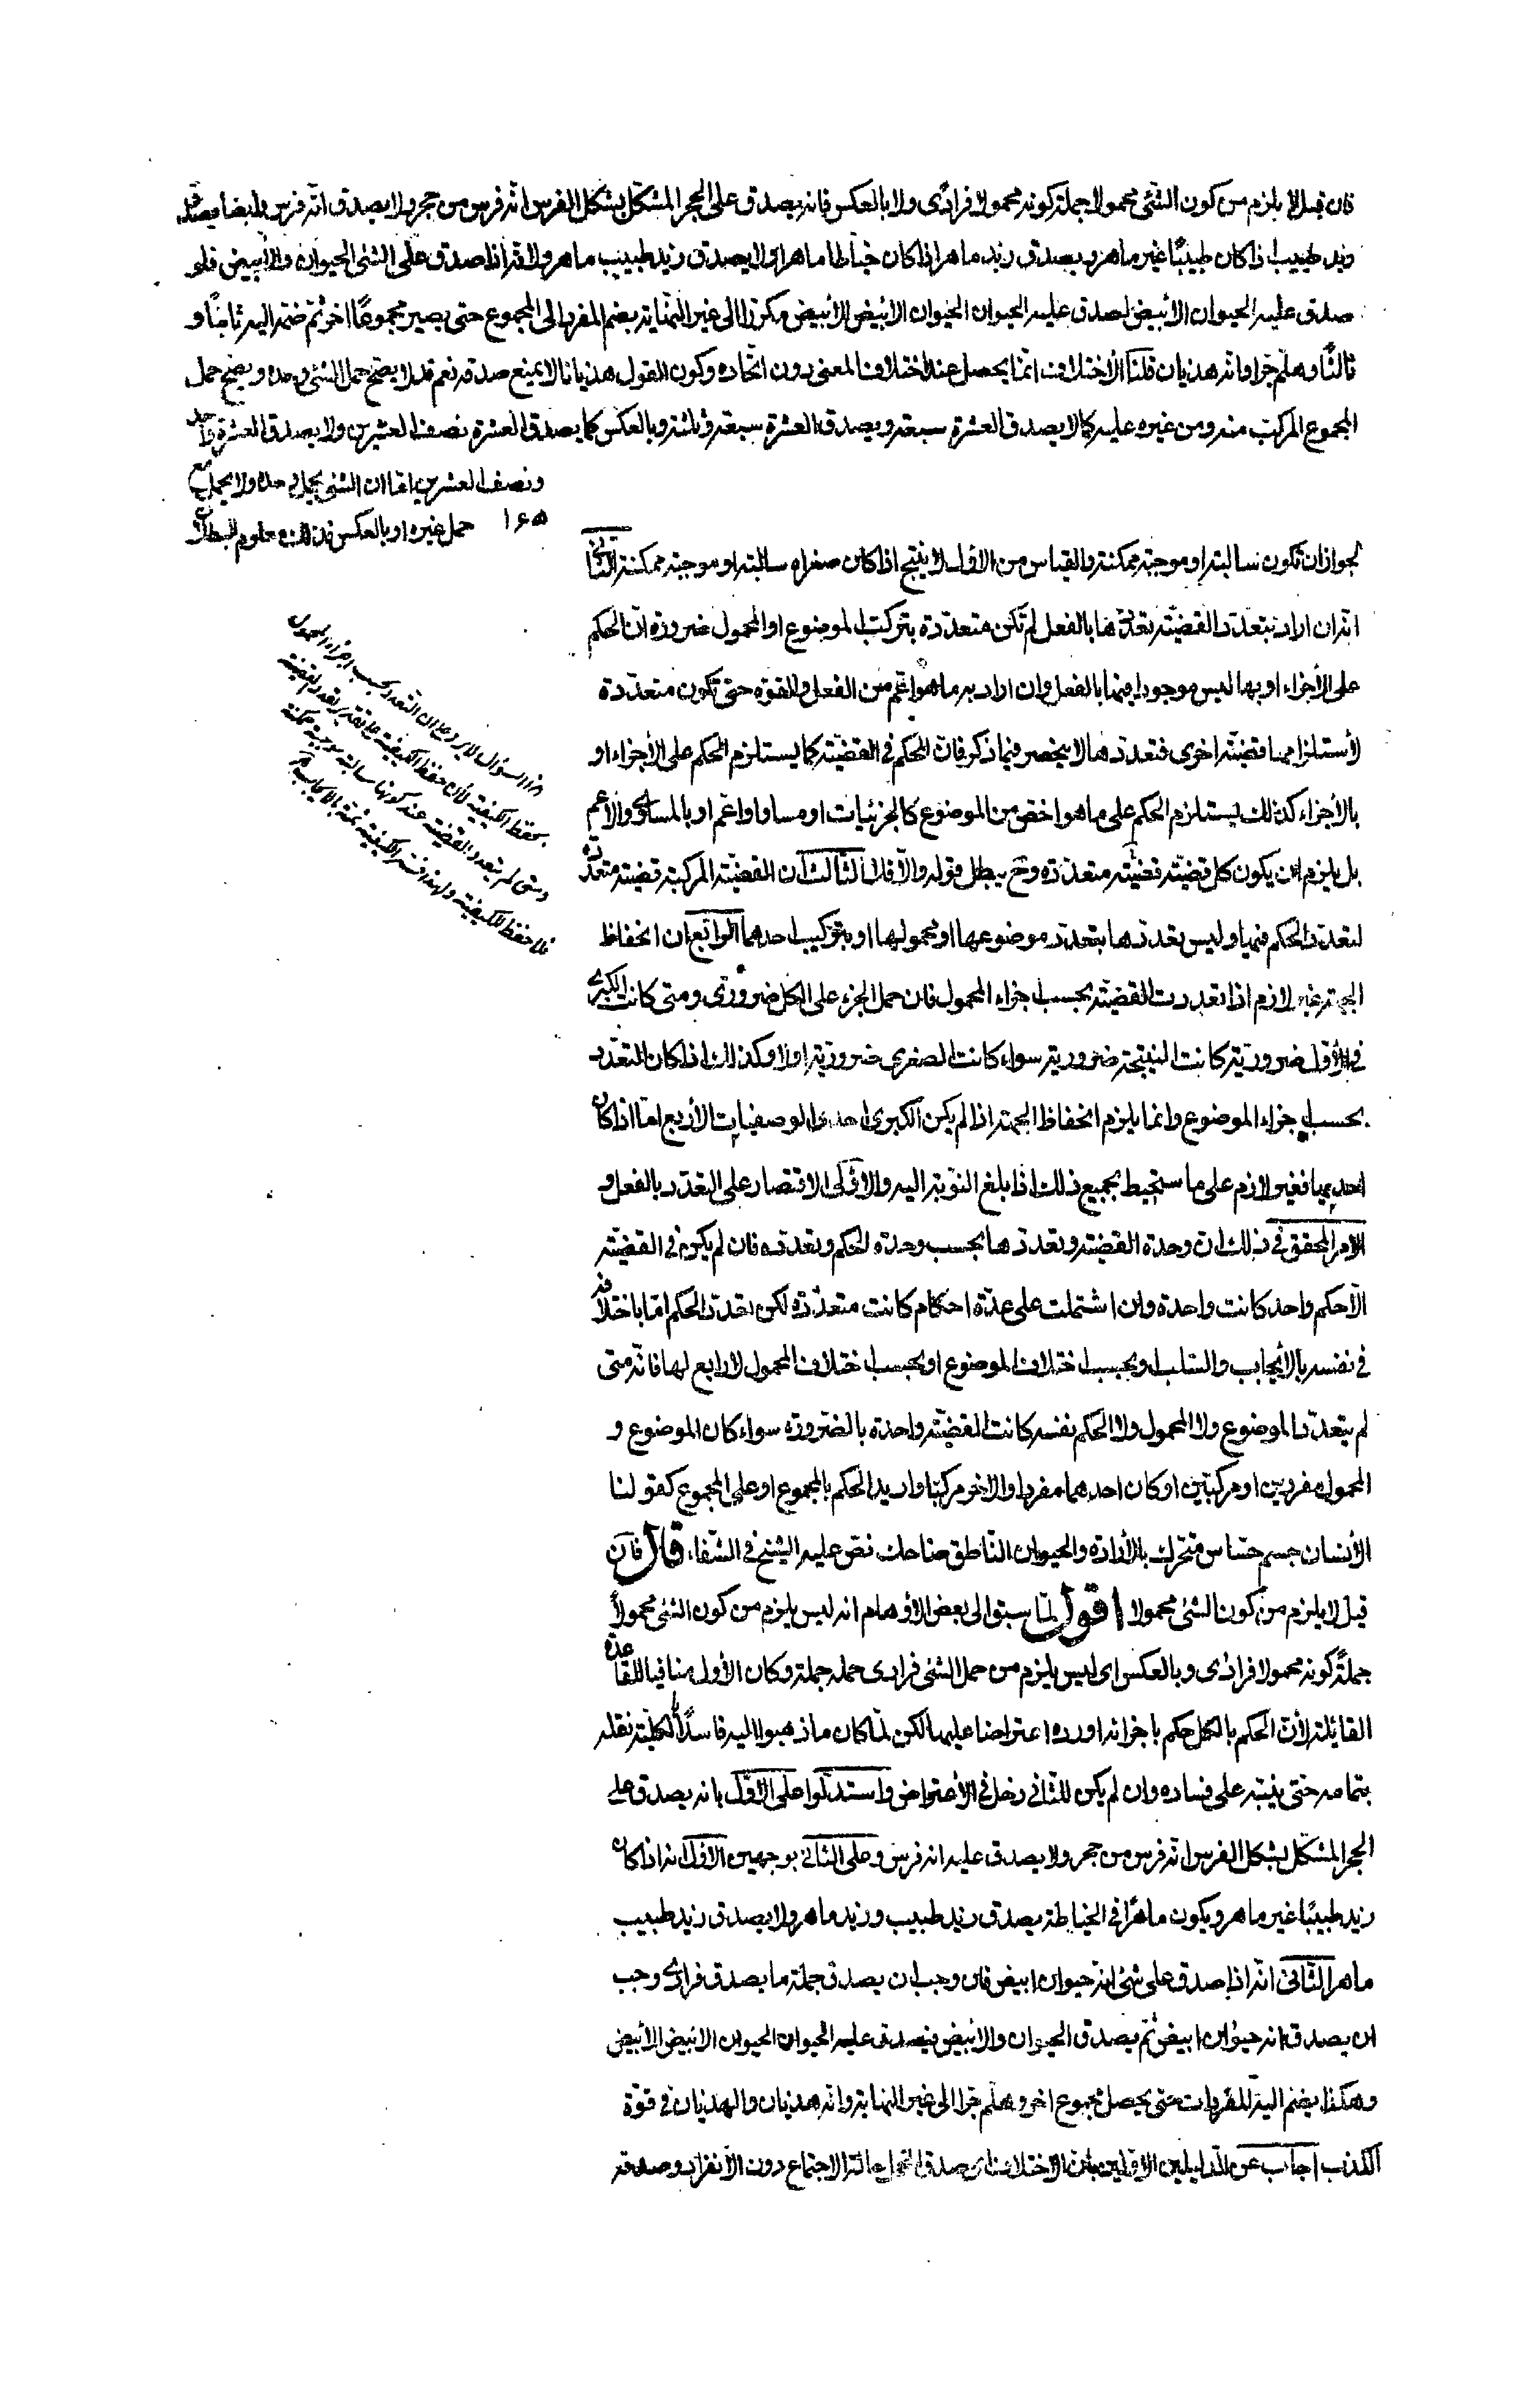 فان قيل لا يلزم من كون الشئ محمولا جملة كونه محمولا فرادى ولا بالعكس فانه يصدق على الحجر المشكل بشكل الفرس انه فرس من حجر ولا يصدق انه فرس وايضا يصدق
زيد طبيب اذا كان طبيبًا غير ماهر ويصدق زيد ماهر اذا كان خياطا ماهرا ولا يصدق زيد طبيب ماهر ولانه اذا صدق على الشئ الحيوان والأبيض فلو
صدق عليه الحيوان الأبيض لصدق عليه الحيوان الحيوان الأبيض الأبيض مكررا الى غير النهاية بضم المفرد الى المجموع حتى يصير مجموعًا اخر ثم ضمه اليه ثانيًا و
ثالثًا وهلم جرا وانه هذيان قلنا الأختلاف انما يحصل عند اختلاف المعنى دون اتحاده وكون القول هذيانا لا يمنع صدقه نعم قد لا يصح حمل الشئ وحده ويصح حمل
المجموع المركب منه ومن غيره عليه كما لا يصدق العشرة سبعة ويصدق العشرة سبعة وثلثة وبالعكس كما يصدق العشرة نصف العشرين ولا يصدق العشرة واحد
ونصف العشرين اما ان الشئ يحمل وحده ولا يحمل مع
حمل غيره او بالعكس فذلك معلوم البطلان ١٦٥
لجواز ان تكون سالبة او موجبة ممكنة والقياس من الأول لا ينتج اذا كان صغراه سالبة او موجبة ممكنة الثانى
انه ان اراد بتعدد القضية تعددها بالفعل لم تكن متعددة بتركب الموضوع او المحمول ضرورة ان الحكم
على الأجزاء او بها ليس موجودا فيها بالفعل وان اراد به ما هو اعم من الفعل والقوة حتى تكون متعددة
لأستلزامها قضية اخرى فتعددها لا ينحصر فيما ذكر فان الحكم فى القضية كما يستلزم الحكم على الأجزاء او
بالأجزاء كذلك يستلزم الحكم على ما هو اخص من الموضوع كالجزئيات او مساو او اعم او بالمساوى والأعم
بل يلزم ان يكون كل قضية قضية متعددة وح يبطل قوله والا فلا الثالث ان القضية المركبة قضية متعددة
لتعدد الحكم فيها وليس تعددها بتعدد موضوعها او محمولها او بتركيب احدهما الرابع ان انحفاظ
الجهة غير لازم اذا تعددت القضية بحسب اجزاء المحمول فان حمل الجزء على الكل ضرورى ومتى كانت الكبرى
فى الأول ضرورية كانت النتيجة ضرورية سواء كانت الصغرى ضرورية او لا وكذلك اذا كان التعدد
بحسب اجزاء الموضوع وانما يلزم انحفاظ الجهة اذا لم يكن الكبرى احدى الوصفيات الأربع اما اذا كان
احديها فغير لازم على ما ستحيط بجميع ذلك اذا بلغ النوبة اليه والأولى الاقتصار على التعدد بالفعل و
الأمر المحقق فى ذلك ان وحدة القضية وتعددها بحسب وحدة الحكم وتعدده فان لم يكن فى القضية
الا حكم واحد كانت واحدة وان اشتملت على عدة احكام كانت متعددة لكن تعدد الحكم اما باختلافه
فى نفسه بالأيجاب والسلب او بحسب اختلاف الموضوع او بحسب اختلاف المحمول لا رابع لها فانه متى
لم يتعدد الموضوع ولا المحمول ولا الحكم نفسه كانت القضية واحدة بالضرورة سواء كان الموضوع و
المحمول مفردين او مركبين او كان احدهما مفردا والاخر مركبا واريد الحكم بالمجموع او على المجموع كقولنا
الأنسان جسم حساس متحرك بالأرادة والحيوان الناطق ضاحك نص عليه الشيخ فى الشفاء قال فان
قيل لا يلزم من كون الشئ محمولا اقول لما سبق الى بعض الأوهام انه ليس يلزم من كون الشئ محمولاً
جملةً كونه محمولا فرادى وبالعكس اى ليس يلزم من حمل الشئ فرادى حمله جملة وكان الأول منافيا للقاعدة
القائلة لأن الحكم بالكل حكم باجزائه اورده اعتراضا عليها لكن لما كان ما ذهبوا اليه فاسدًا بالكلية نقله
بتمامه حتى ينبه على فساده وان لم يكن للثانى دخل فى الأعتراض واستدلوا على الأول بانه يصدق على
الحجر المشكل بشكل الفرس انه فرس من حجر ولا يصدق عليه انه فرس وعلى الثانى بوجهين الأول انه اذا كان
زيد طبيبًا غير ماهر ويكون ماهرًا فى الخياطة يصدق زيد طبيب وزيد ماهر ولا يصدق زيد طبيب
ماهر الثانى انه اذا صدق على شئ انه حيوان ابيض فان وجب ان يصدق جملة ما يصدق فرادى وجب
ان يصدق انه حيوان ابيض ثم يصدق الحيوان والأبيض فيصدق عليه الحيوان الحيوان الأبيض الأبيض
وهكذا يضم اليه المفردات حتى يحصل مجموع اخر وهلم جرا الى غير النهاية وانه هذيان والهذيان فى قوة
الكذب اجاب عن الدليلين الاولين بان الاختلاف اى صدق المحمول حالة الاجتماع دون الأنفراد وصدقه
هذا السؤال لا يرد على ان التعدد بحسب اجزاء المحمول
يحفظ الكيفية لأن حفظ الكيفية على تقدير تعدد القضية
ومتى لم يتعدد القضية عند كونها سالبة موجبة ممكنة